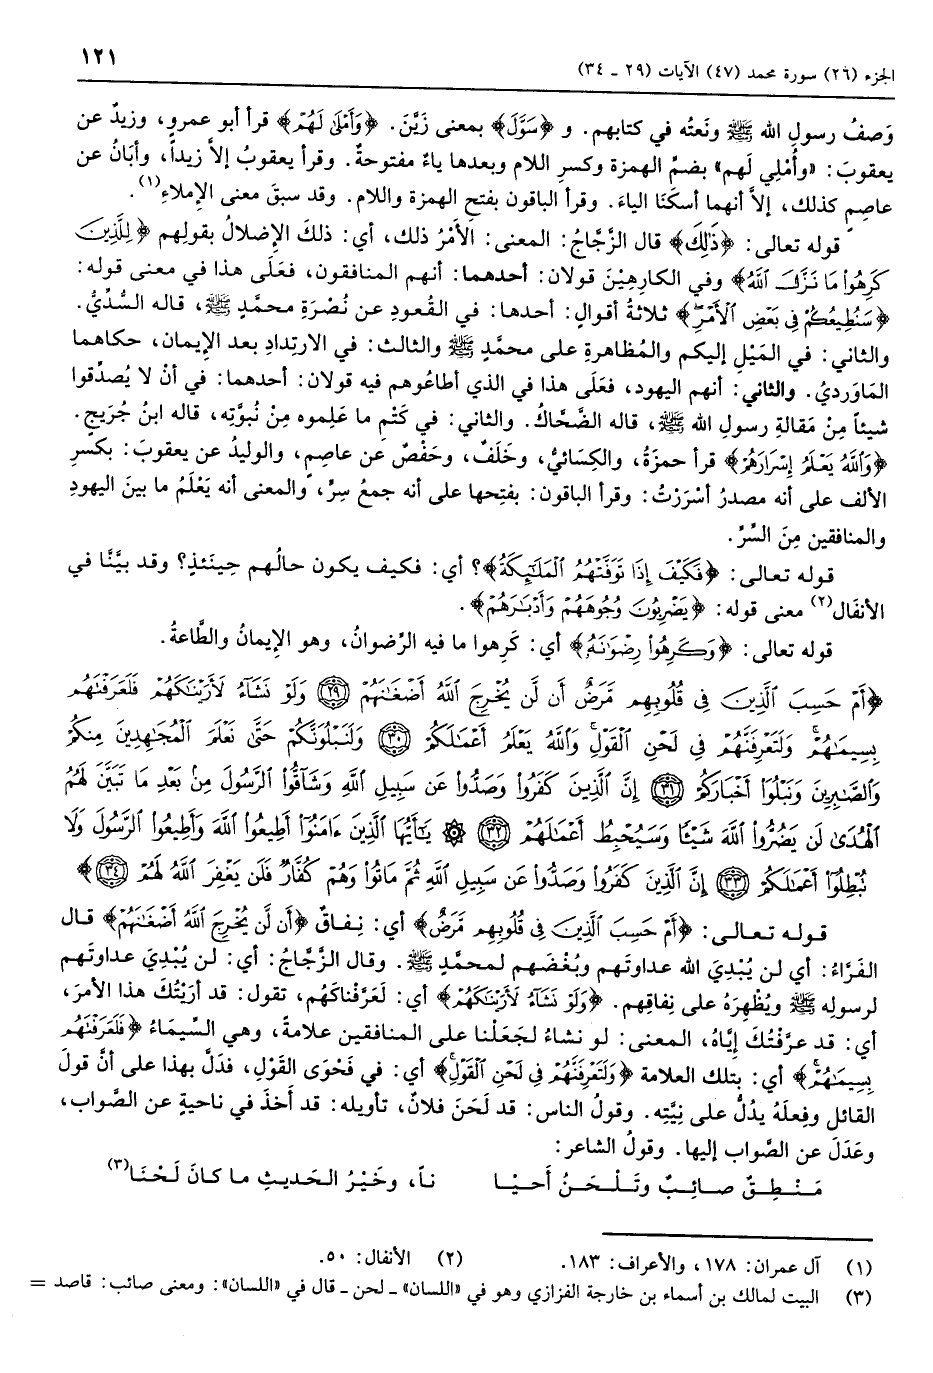 الجزء (٢٦) سورة محمد (٤٧) الآيات (٢٩ ـ ٣٤)
١٢١
وَصفُ رسولِ الله ﷺ ونَعتُه في كتابهم. و ﴿سَوَّلَ﴾ بمعنى زَيَّنَ. ﴿وَأَمْلَىٰ لَهُمْ﴾ قرأ أبو عمرو، وزيدٌ عن
يعقوبَ: «وأُمْلِي لَهم» بضمِّ الهمزة وكسرِ اللام وبعدها ياءٌ مفتوحةٌ. وقرأ يعقوبُ إلاَّ زيداً، وأبَانُ عن
عاصمٍ كذلك، إلاَّ أنهما أسكَنَا الياءَ. وقرأ الباقون بفتحِ الهمزة واللام. وقد سبقَ معنى الإِملاءِ(١).
قوله تعالى: ﴿ذَٰلِكَ﴾ قال الزَّجَّاجُ: المعنى: الأَمْرُ ذلك، أي: ذلكَ الإِضلالُ بقولهم ﴿لِلَّذِينَ
كَرِهُوا۟ مَا نَزَّلَ ٱللَّهُ﴾ وفي الكارِهِيْنَ قولان: أحدهما: أنهم المنافقون، فعَلَى هذا في معنى قوله:
﴿سَنُطِيعُكُمْ فِى بَعْضِ ٱلْأَمْرِ﴾ ثلاثةُ أقوالٍ: أحدها: في القُعودِ عن نُصْرَةِ محمَّدٍ ﷺ، قاله السُّدِّيُّ.
والثاني: في المَيْلِ إليكم والمُظاهرةِ على محمَّدٍ ﷺ والثالث: في الارتِدادِ بعد الإِيمان، حكاهما
المَاوَرديُّ. والثاني: أنهم اليهود، فعَلَى هذا في الذي أطاعُوهم فيه قولان: أحدهما: في أنْ لا يُصدِّقوا
شيئاً مِنْ مَقالةِ رسولِ الله ﷺ، قاله الضَّحَّاكُ. والثاني: في كَتْمِ ما عَلِموه مِنْ نُبوَّتِه، قاله ابنُ جُرَيجٍ.
﴿وَٱللَّهُ يَعْلَمُ إِسْرَارَهُمْ﴾ قرأ حمزةُ، والكِسَائيُّ، وخَلَفٌ، وحَفْصٌ عن عاصمٍ، والوليدُ عن يعقوبَ: بكسرِ
الألف على أنه مصدرُ أسْرَرْتُ: وقرأ الباقون: بفتحِها على أنه جمعُ سِرٍّ، والمعنى أنه يَعْلَمُ ما بينَ اليهودِ
والمنافقين مِنَ السِّرِّ.
قوله تعالى: ﴿فَكَيْفَ إِذَا تَوَفَّتْهُمُ ٱلْمَلَٰٓئِكَةُ﴾؟ أي: فكيف يكون حالُهم حِينَئذٍ؟ وقد بيَّنَّا في
الأنفَال(٢) معنى قوله: ﴿يَضْرِبُونَ وُجُوهَهُمْ وَأَدْبَٰرَهُمْ﴾.
قوله تعالى: ﴿وَكَرِهُوا۟ رِضْوَٰنَهُۥ﴾ أي: كَرِهوا ما فيه الرِّضوانُ، وهو الإِيمانُ والطَّاعةُ.
﴿أَمْ حَسِبَ ٱلَّذِينَ فِى قُلُوبِهِم مَّرَضٌ أَن لَّن يُخْرِجَ ٱللَّهُ أَضْغَٰنَهُمْ ﴿٢٩﴾ وَلَوْ نَشَآءُ لَأَرَيْنَٰكَهُمْ فَلَعَرَفْتَهُم
بِسِيمَٰهُمْ ۚ وَلَتَعْرِفَنَّهُمْ فِى لَحْنِ ٱلْقَوْلِ ۚ وَٱللَّهُ يَعْلَمُ أَعْمَٰلَكُمْ ﴿٣٠﴾ وَلَنَبْلُوَنَّكُمْ حَتَّىٰ نَعْلَمَ ٱلْمُجَٰهِدِينَ مِنكُمْ
وَٱلصَّٰبِرِينَ وَنَبْلُوَا۟ أَخْبَارَكُمْ ﴿٣١﴾ إِنَّ ٱلَّذِينَ كَفَرُوا۟ وَصَدُّوا۟ عَن سَبِيلِ ٱللَّهِ وَشَآقُّوا۟ ٱلرَّسُولَ مِنۢ بَعْدِ مَا تَبَيَّنَ لَهُمُ
ٱلْهُدَىٰ لَن يَضُرُّوا۟ ٱللَّهَ شَيْـًٔا وَسَيُحْبِطُ أَعْمَٰلَهُمْ ﴿٣٢﴾ ۞ يَٰٓأَيُّهَا ٱلَّذِينَ ءَامَنُوٓا۟ أَطِيعُوا۟ ٱللَّهَ وَأَطِيعُوا۟ ٱلرَّسُولَ وَلَا
تُبْطِلُوٓا۟ أَعْمَٰلَكُمْ ﴿٣٣﴾ إِنَّ ٱلَّذِينَ كَفَرُوا۟ وَصَدُّوا۟ عَن سَبِيلِ ٱللَّهِ ثُمَّ مَاتُوا۟ وَهُمْ كُفَّارٌ فَلَن يَغْفِرَ ٱللَّهُ لَهُمْ ﴿٣٤﴾﴾
قوله تعالى: ﴿أَمْ حَسِبَ ٱلَّذِينَ فِى قُلُوبِهِم مَّرَضٌ﴾ أي: نِفاقٌ ﴿أَن لَّن يُخْرِجَ ٱللَّهُ أَضْغَٰنَهُمْ﴾ قال
الفَرَّاءُ: أي لن يُبْدِيَ الله عداوتَهم وبُغْضَهم لمحمَّدٍ ﷺ. وقال الزَّجَّاجُ: أي: لن يُبْدِيَ عداوتَهم
لرسولِه ﷺ ويُظْهِرَهُ على نِفاقِهم. ﴿وَلَوْ نَشَآءُ لَأَرَيْنَٰكَهُمْ﴾ أي: لَعَرَّفناكَهُم، تقول: قد أرَيْتُكَ هذا الأمرَ،
أي: قد عرَّفْتُكَ إيَّاهُ، المعنى: لو نشاءُ لجَعَلْنا على المنافقين علامةً، وهي السِّيمَاءُ ﴿فَلَعَرَفْتَهُم
بِسِيمَٰهُمْ﴾ أي: بتلك العلامة ﴿وَلَتَعْرِفَنَّهُمْ فِى لَحْنِ ٱلْقَوْلِ﴾ أي: في فَحْوَى القَوْلِ، فدَلَّ بهذا على أنَّ قولَ
القائل وفِعلَهُ يدُلُّ على نِيَّتِه. وقولُ الناس: قد لَحَنَ فلانٌ، تأويله: قد أخذَ في ناحيةٍ عن الصَّواب،
وعَدَلَ عن الصَّواب إليها. وقولُ الشاعر:
مَنْطِقٌ صائِبٌ وتَلْحَنُ أَحيا ناً، وخَيْرُ الحَديثِ ما كانَ لَحْنَا(٣)
(١) آل عمران: ١٧٨، والأعراف: ١٨٣. (٢) الأنفال: ٥٠.
(٣) البيت لمالك بن أسماء بن خارجة الفزازي وهو في «اللسان» ـ لحن ـ قال في «اللسان»: ومعنى صائب: قاصد =